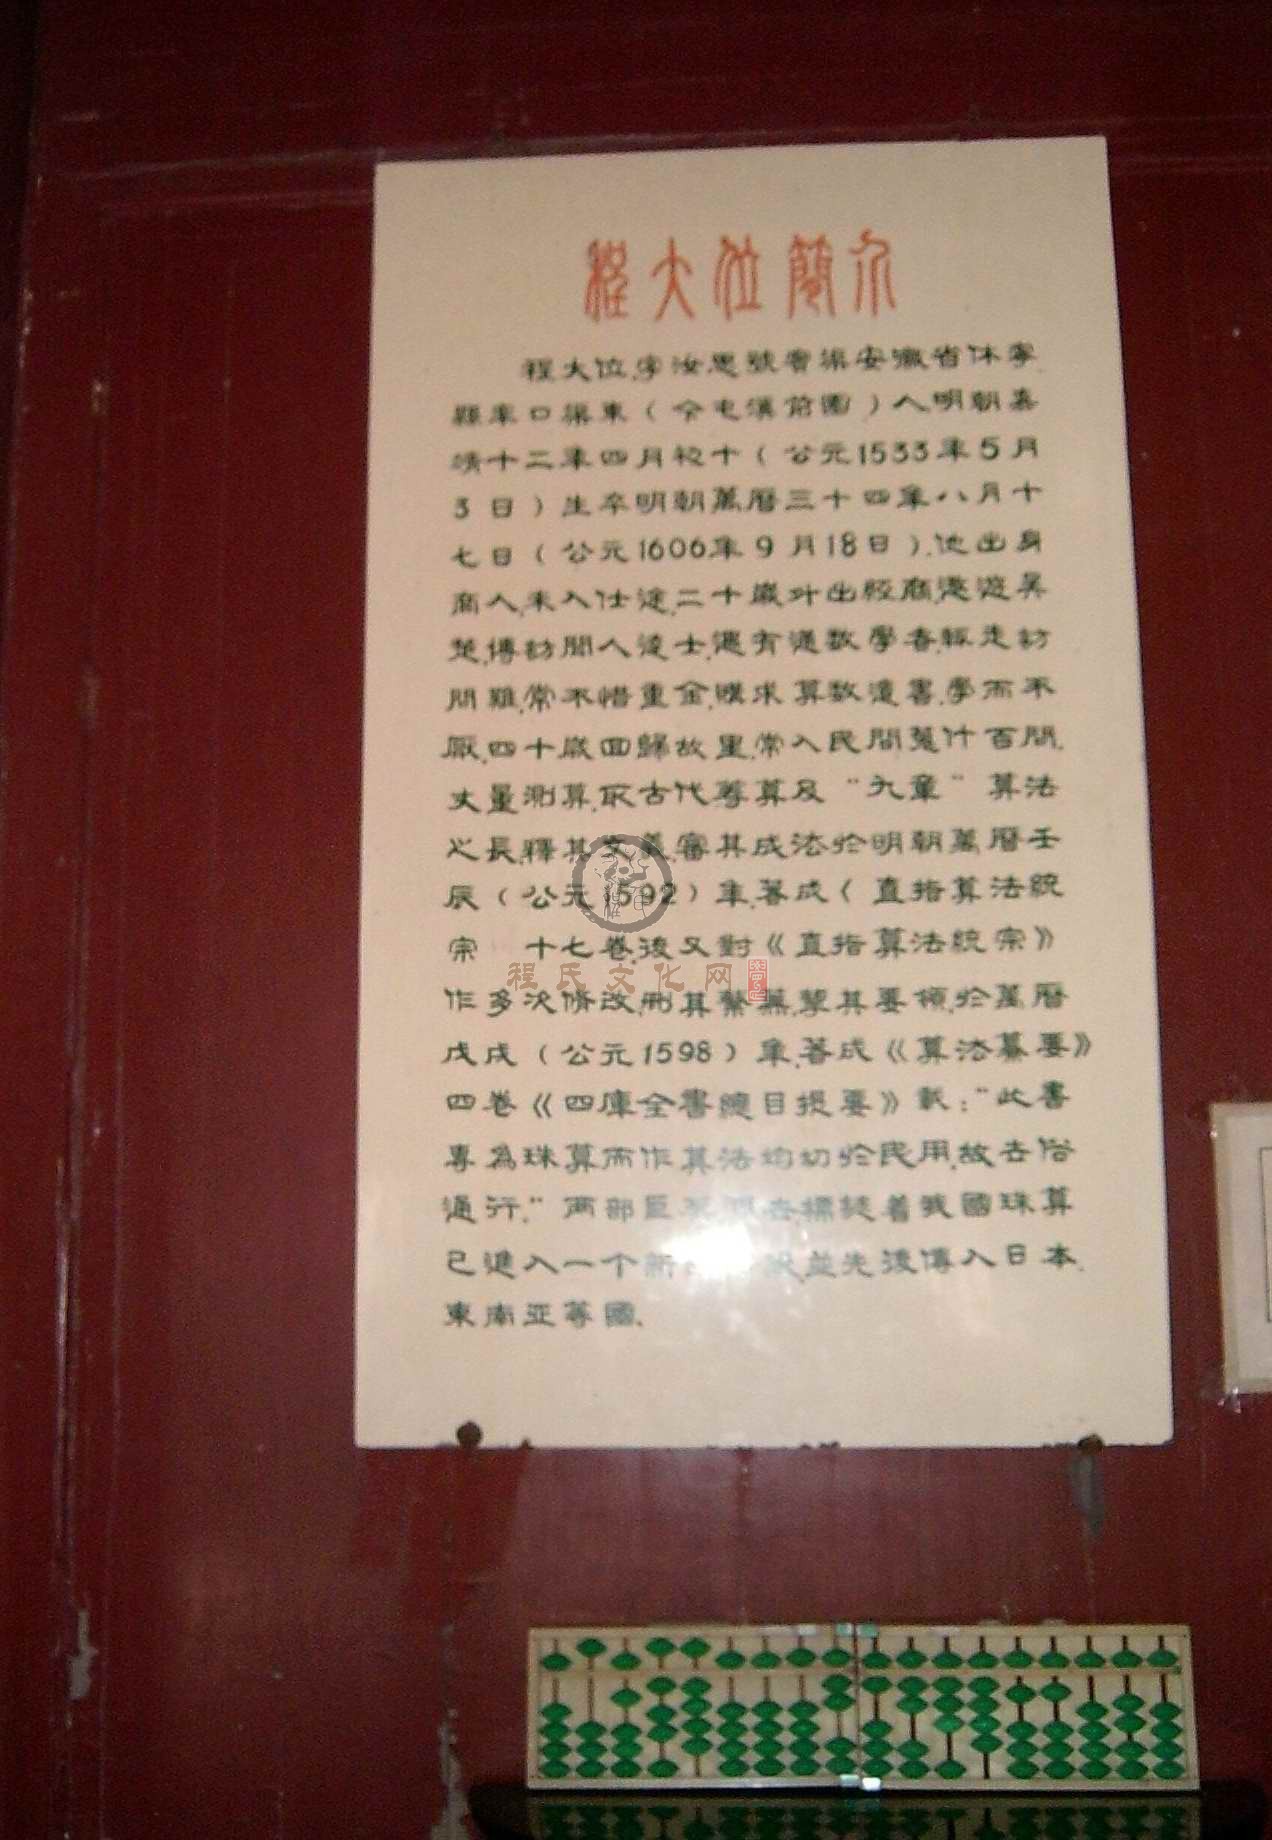 程大位簡介
程大位,字汝思號賓渠安徽省休寧
縣率口渠東(今屯溪前園)人明朝嘉
靖十二年四月初十(公元1533年5月
3日)生卒明朝萬曆三十四年八月十
七日(公元1606年9月18日).他出身
商人,未入仕途,二十歲外出經商,遨遊吳
楚,傅訪聞人達士,遇有通数學者,輒走訪
問難,常不惜重金,購求算数遺書,學而不
厭,四十歲回歸故里,常入民間蒐什百問,
丈量測算,取古代籌算及"九章"算法
之長,釋其文義,審其成法於明朝萬曆壬
辰(公元1592)年,著成〈直指算法統
宗 十七卷,後又對《直指算法統宗》
作多次修改,刪其繁蕪,挈其要領,於萬曆
戊戌(公元1598)年,著成《算法纂要》
四卷《四庫全書總目提要》載:"此書
專為珠算而作算法均切於民用,故去俗
通行."两部巨 標誌着我國珠算
已進入一个新 並先後傳入日本,
東南亚等國、
程氏文化网